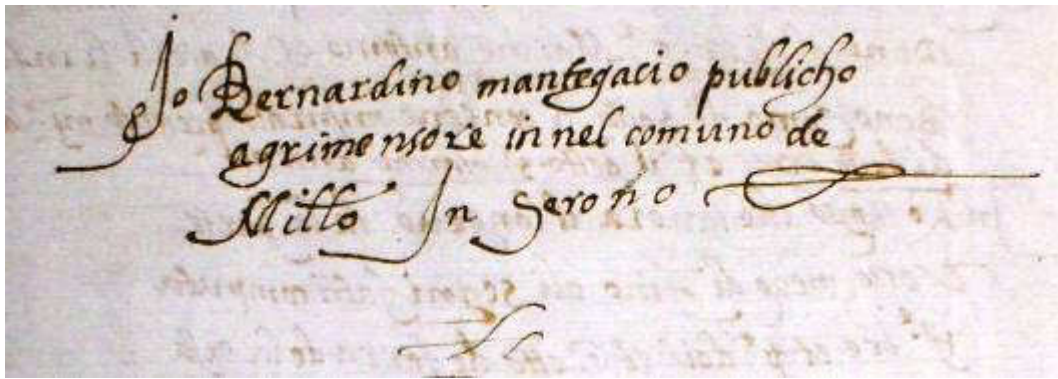 Jo Bernardino mantegacio publicho
agrimensore in nel comuno de
Millo In Serono